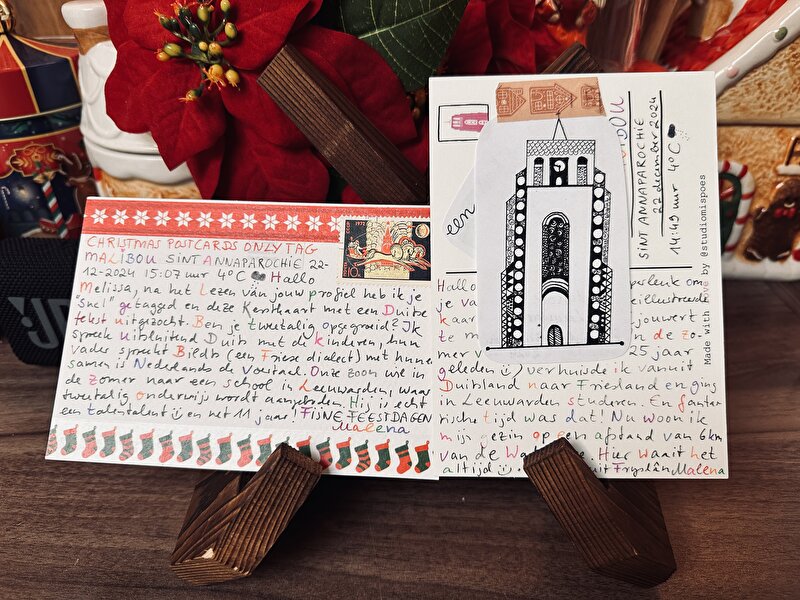 CHRISTMAS POSTCARDS ONLY TAG
MALIBOU SINT ANNAPAROCHIE 22-
12-2024 15:07 uur 4°C Hallo
Melissa, na het Lezen van jouw profiel heb ik je
"snel" getagged en deze Kerstkaart met een Duitse
tekst uitgezocht. Ben je tweetalig opgegroeid? Ik
spreek uitsluitend Duits met de kinderen, hun
vader spreekt Bildts (een Fries dialect) met hun en
samen is Nederlands de voertaal. Onze zoon wil in
de zomer naar een school in Leeuwarden, waar
tweetalig onderwijs wordt aangeboden. Hij is echt
een talentalent en net 11 jaar! FIJNE FEESTDAGEN
Malena
1972
een
IBOU
SINT ANNAPAROCHIE
22 december 2024
14:49 uur 4°C
Made with love by @studiomispoes
Hallo
je va
kaar
te m
mer v 25 jaar
geleden verhuisde ik vanuit
Duitsland naar Friesland en ging
in Leeuwarden studeren. Een fantas-
tische tijd was dat! Nu woon ik
mijn gezin op een afstand van 6km
van de Wa Hier waait het
altijd uit Fryslân Malena